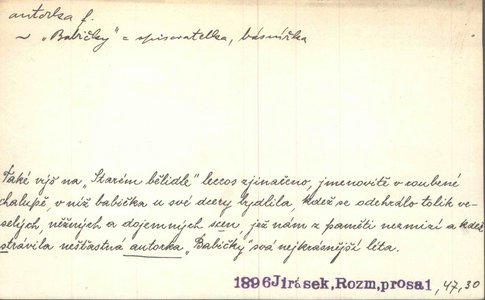 autorka f.
~ „Babičky" = spisovatelka, básnířka
Také výš na „Starém bělidle" leccos zjinačeno, jmenovitě v roubené
chalupě, v níž babička u své dcery bydlila, kdež se odehrálo tolik ve-
selých, něžných a dojemných scen, jež nám z paměti nezmizí a kdež
strávila nešťastná autorka „Babičky" svá nejkrásnější léta.
1896 Jirásek, Rozm, prosa1, 47, 30